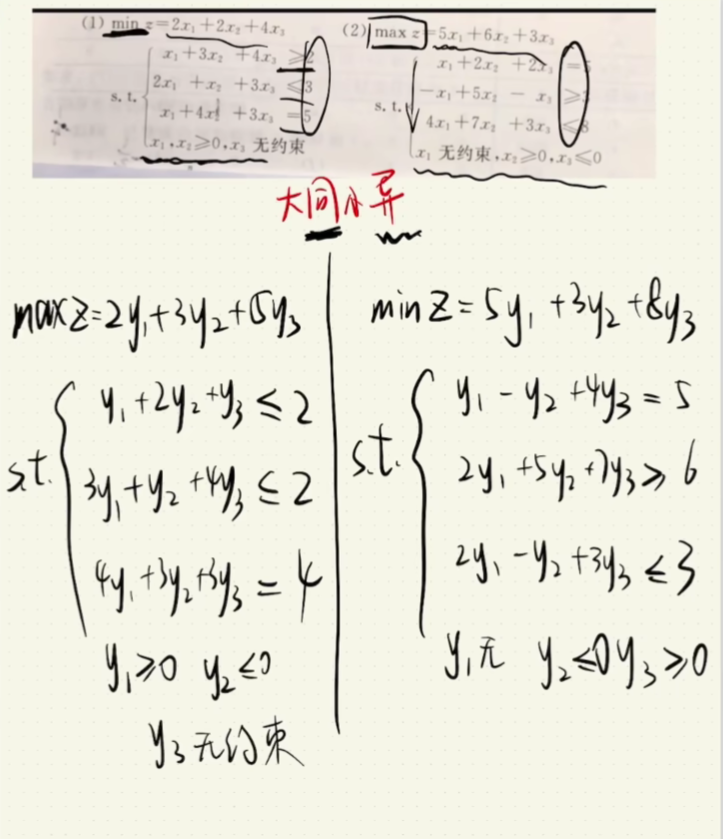 (1) min z=2x₁+2x₂+4x₃
x₁+3x₂ +4x₃ ≥2
2x₁ +x₂ +3x₃ ≤3
x₁+4x₂ +3x₃ =5
s.t.
x₁,x₂≥0,x₃ 无约束
(2) max z=5x₁+6x₂+3x₃
x₁+2x₂ +2x₃ =5
-x₁+5x₂ - x₃ ≥3
s.t.
4x₁+7x₂ +3x₃ ≤8
x₁ 无约束,x₂≥0,x₃≤0
大同小异
maxZ=2y₁+3y₂+5y₃
s.t.
y₁+2y₂+y₃≤2
3y₁+y₂+4y₃≤2
4y₁+3y₂+3y₃=4
y₁≥0 y₂≤0
y₃无约束
minZ=5y₁+3y₂+8y₃
s.t.
y₁-y₂+4y₃=5
2y₁+5y₂+7y₃≥6
2y₁-y₂+3y₃≤3
y₁无 y₂≤0 y₃≥0